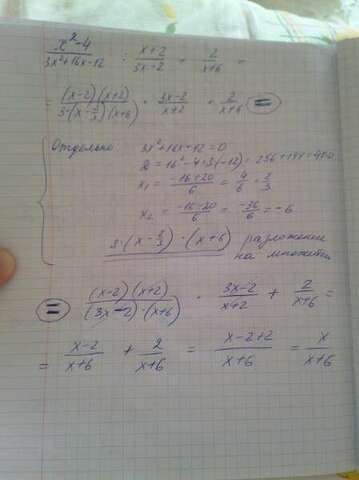 x²-4 / 3x²+16x-12 : x+2 / 3x-2 + 2 / x+6 =
= (x-2)(x+2) / 3·(x-2/3)(x+6) · 3x-2 / x+2 + 2 / x+6 =
Отдельно 3x²+16x-12=0
D=16²-4·3·(-12)=256+144=400
x₁ = -16+20 / 6 = 4/6 = 2/3
x₂ = -16-20 / 6 = -36/6 = -6
3·(x-2/3)·(x+6) разложение
на множители
= (x-2)(x+2) / (3x-2)·(x+6) · 3x-2 / x+2 + 2 / x+6 =
= x-2 / x+6 + 2 / x+6 = x-2+2 / x+6 = x / x+6